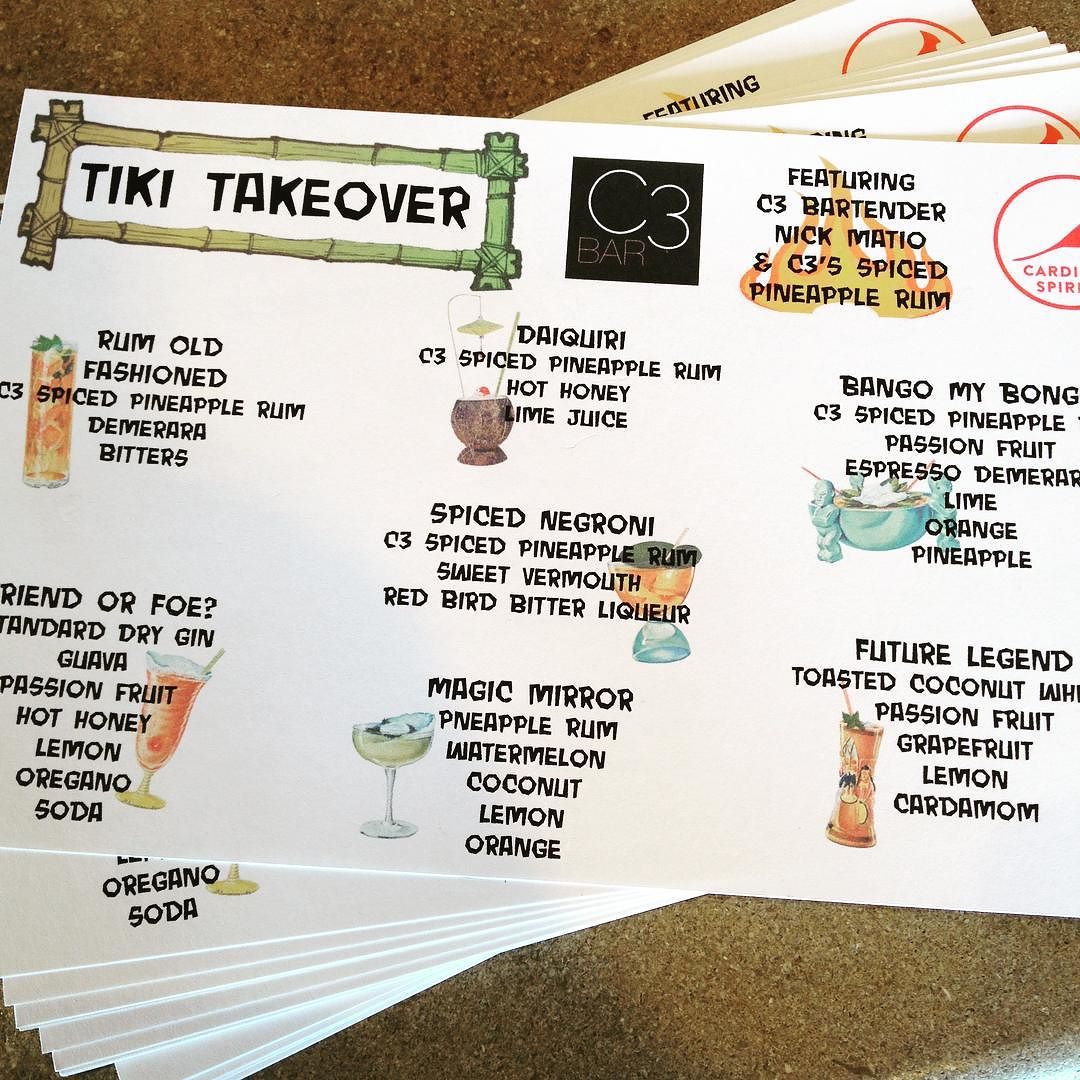 TIKI TAKEOVER
C3
BAR
FEATURING
C3 BARTENDER
NICK MATIO
& C3'S SPICED
PINEAPPLE RUM
CARDI
SPIRI
FEATURING
RING
RUM OLD
FASHIONED
C3 SPICED PINEAPPLE RUM
DEMERARA
BITTERS
DAIQUIRI
C3 SPICED PINEAPPLE RUM
HOT HONEY
LIME JUICE
BANGO MY BONG
C3 SPICED PINEAPPLE
PASSION FRUIT
ESPRESSO DEMERAR
LIME
ORANGE
PINEAPPLE
SPICED NEGRONI
C3 SPICED PINEAPPLE RUM
SWEET VERMOUTH
RED BIRD BITTER LIQUEUR
RIEND OR FOE?
TANDARD DRY GIN
GUAVA
PASSION FRUIT
HOT HONEY
LEMON
OREGANO
SODA
MAGIC MIRROR
PNEAPPLE RUM
WATERMELON
COCONUT
LEMON
ORANGE
FUTURE LEGEND
TOASTED COCONUT WHI
PASSION FRUIT
GRAPEFRUIT
LEMON
CARDAMOM
OREGANO
SODA